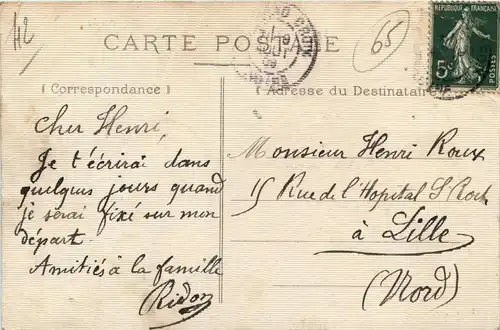 42
65
CARTE POSTALE
REPUBLIQUE FRANÇAISE
5c
POSTES
(Correspondance)
Adresse du Destinataire
Cher Henri,
Je t'écrirai dans
quelques jours quand
je serai fixé sur mon
départ.
Amitiés à la famille
Ridon
Monsieur Henri Roux
15 Rue de l'Hopital S Roch
à Lille
(Nord)